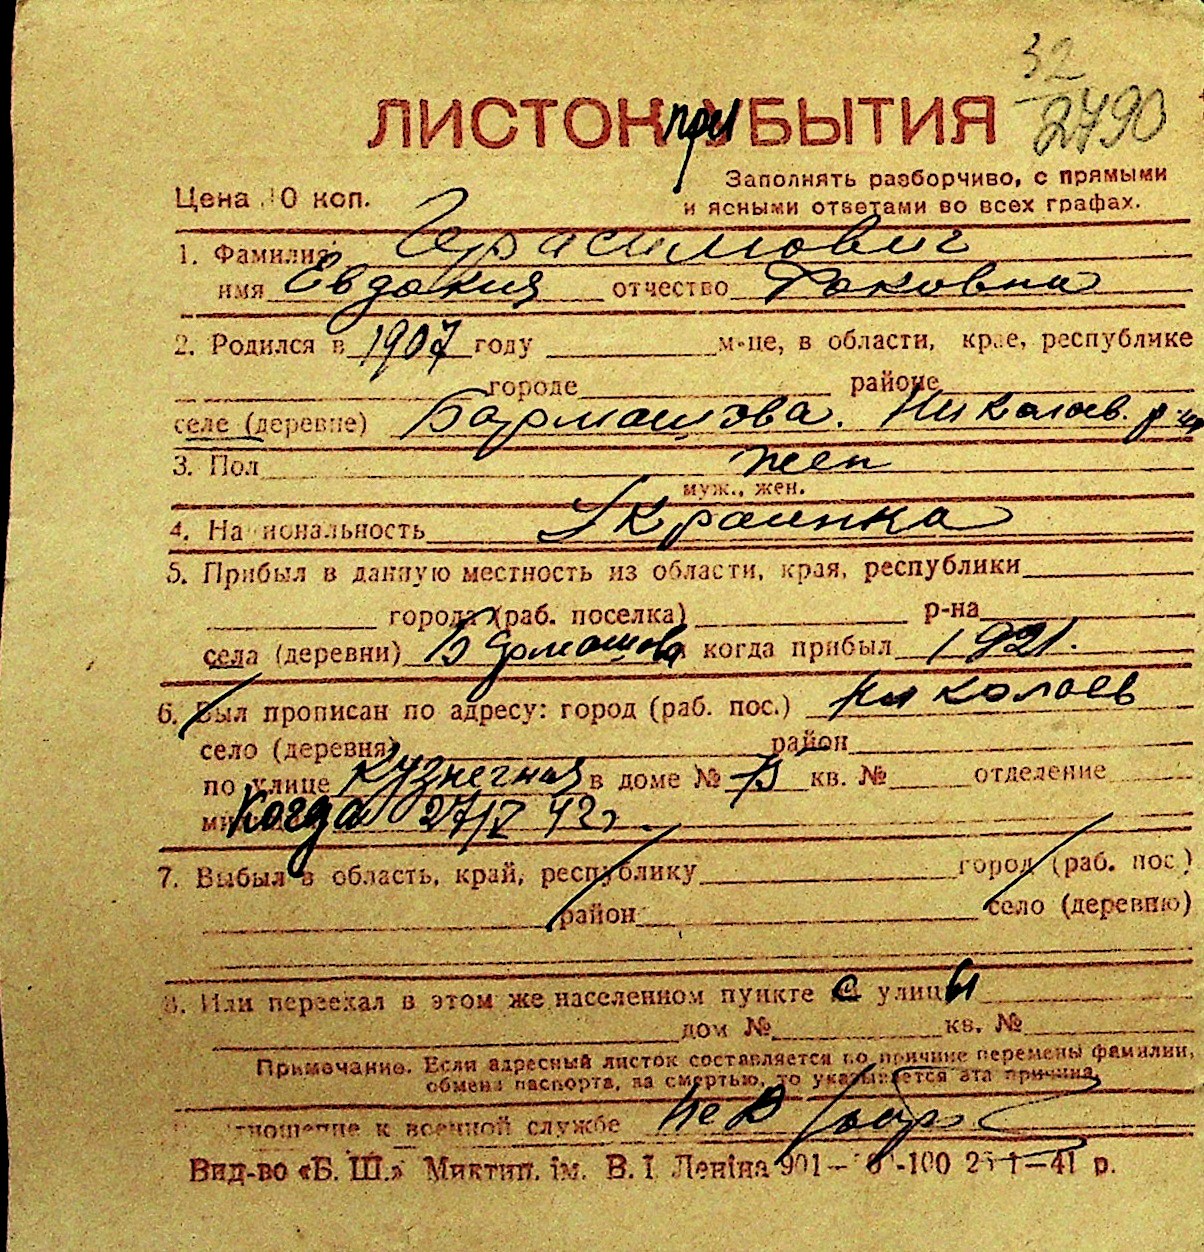 32
2790
ЛИСТОК при УБЫТИЯ
Заполнять разборчиво, с прямыми
Цена 10 коп.
и ясными ответами во всех графах.
1. Фамилия Герасимович
имя Евдокия отчество Фоковна
2. Родился в 1907 году м-це, в области, крае, республике
городе районе
селе (деревне) Бармашова. Николаев. р-н
3. Пол жен
муж., жен.
4. Национальность Украинка
5. Прибыл в данную местность из области, края, республики
города (раб. поселка) р-на
села (деревни) Бармашова когда прибыл 1921.
6. Был прописан по адресу: город (раб. пос.) Николаев
село (деревня) район
по улице Кузнечная в доме № 75 кв. № отделение
Когда 27/V 42г.
7. Выбыл в область, край, республику город (раб. пос.)
район село (деревню)
8. Или переехал в этом же населенном пункте с улицы
дом № кв. №
Примечание. Если адресный листок составляется по причине перемены фамилии,
обмена паспорта, за смертью, то указывается эта причина.
отношение к военной службе не в
Вид-во «Б. Ш.» Миктип. ім. В. І. Леніна 901— -100 25 1—41 р.